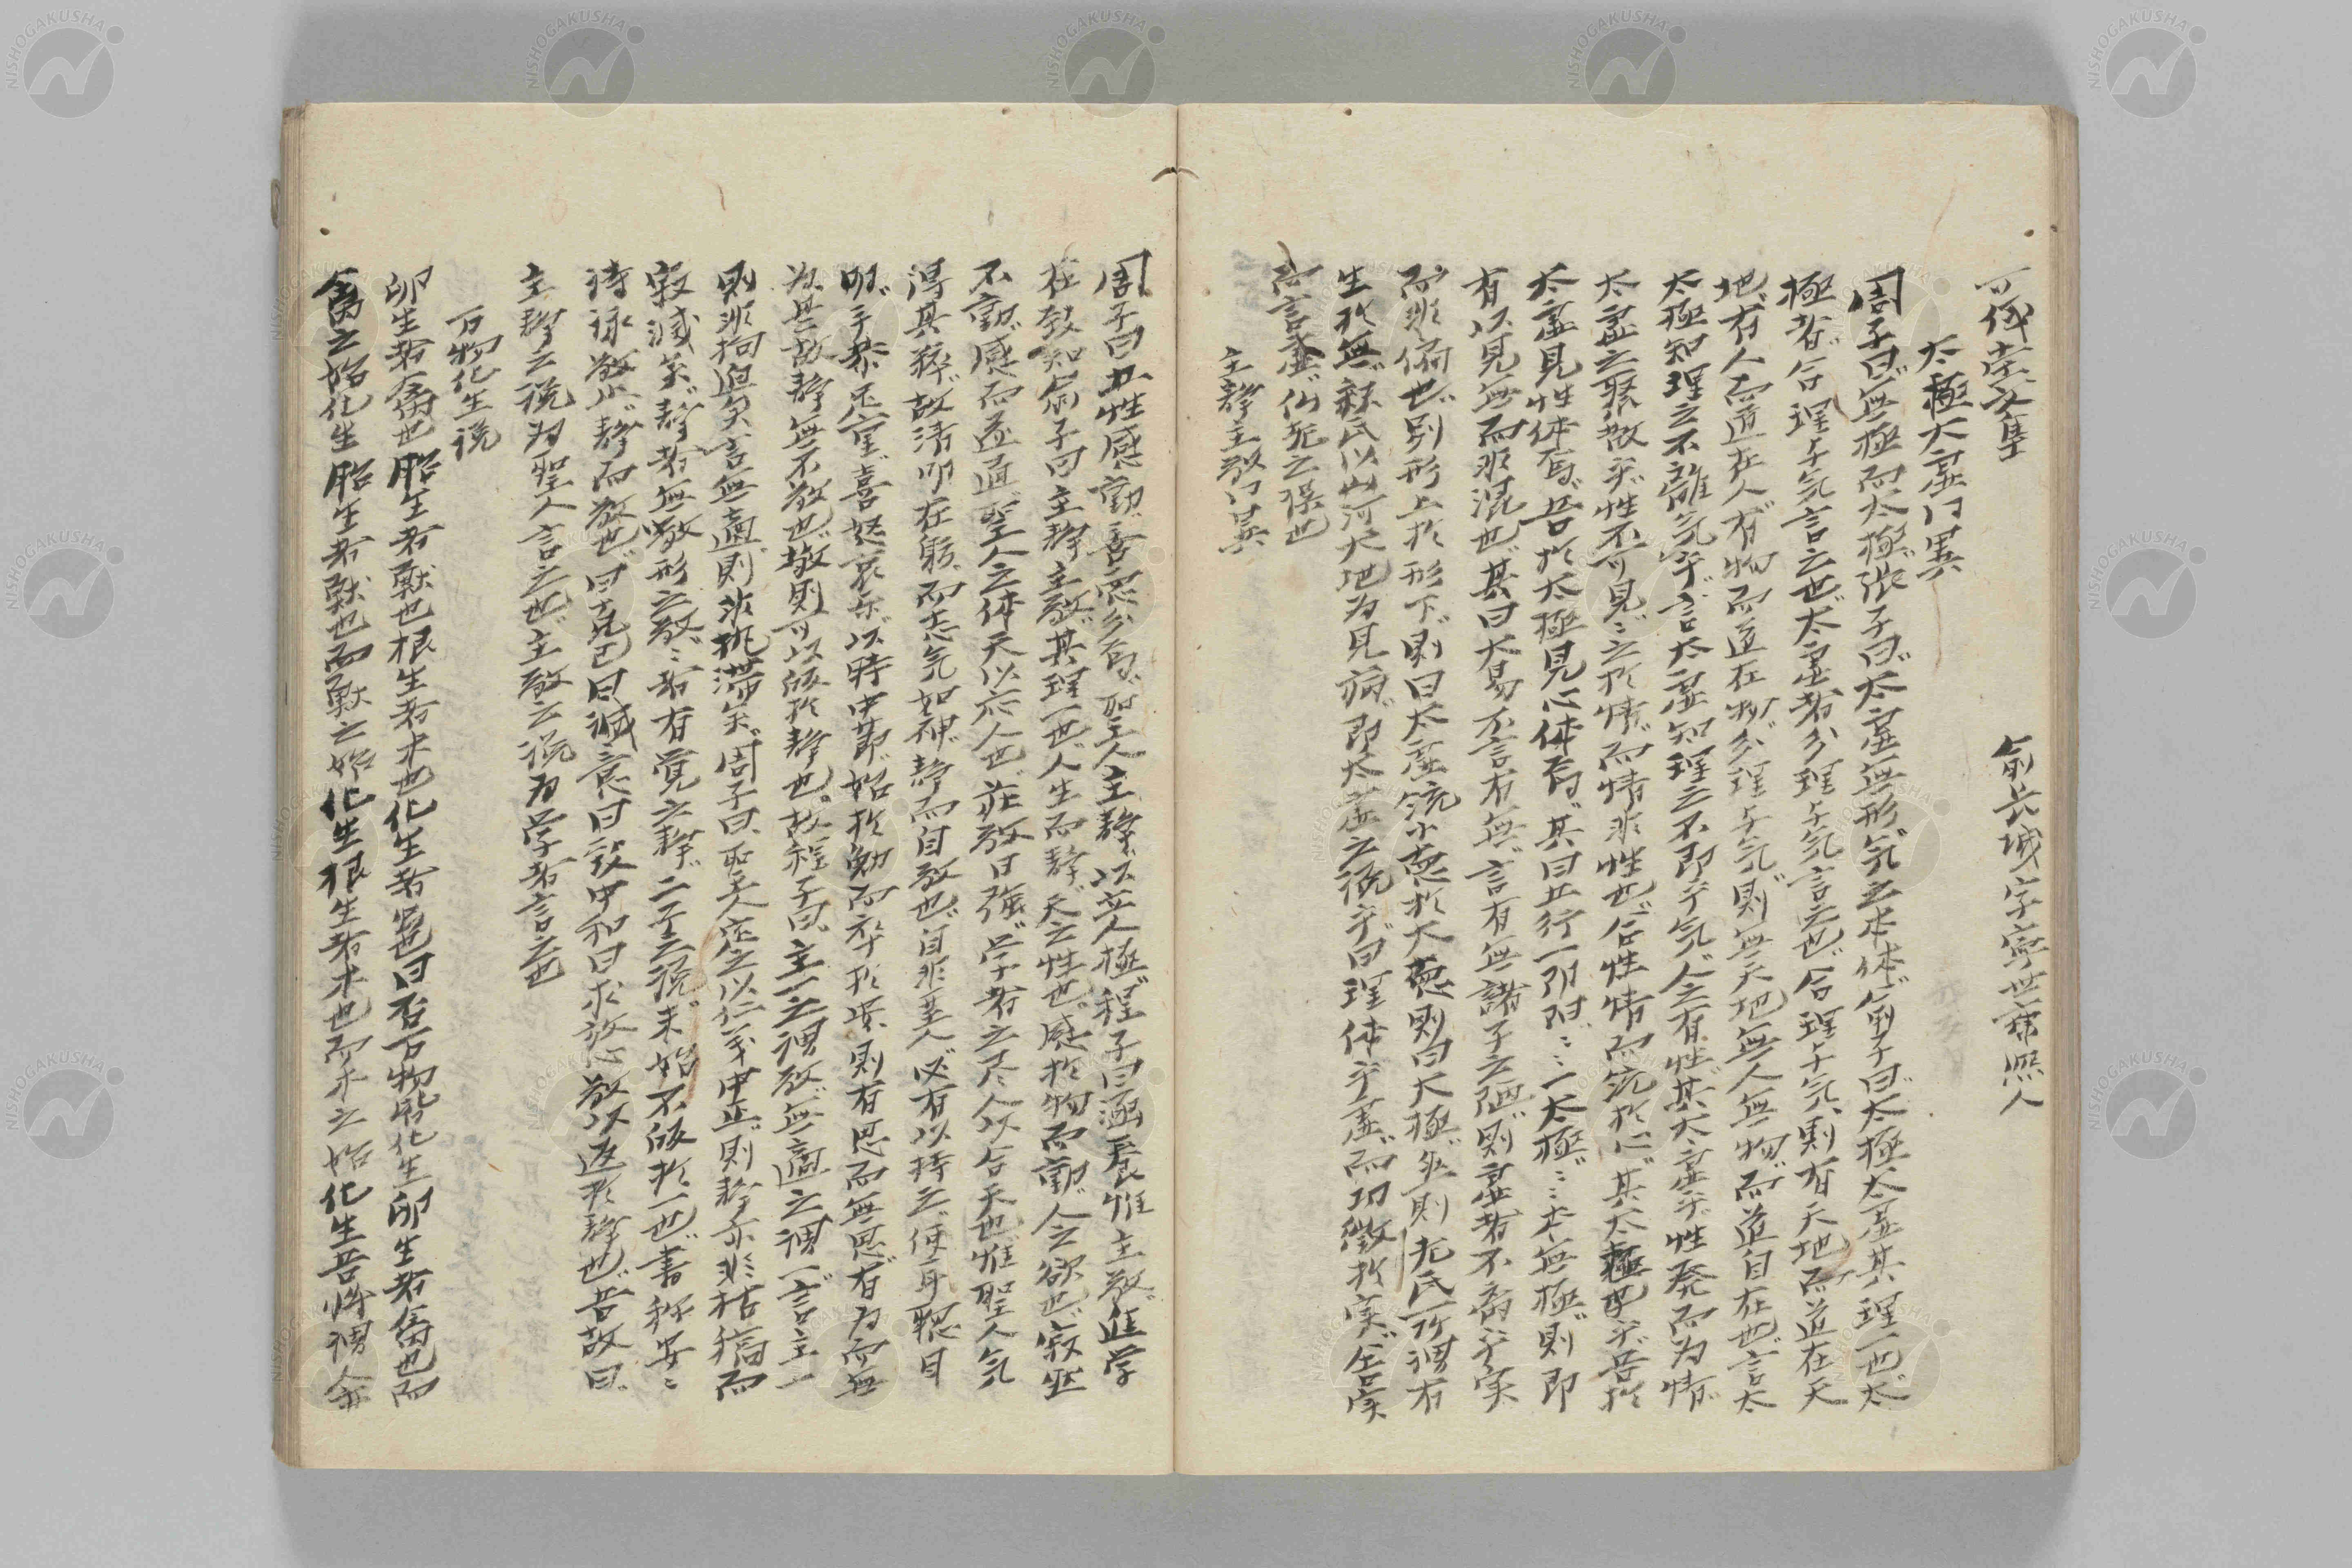 可儀堂文集　俞長城字寧世琹照人
太極太虚同異
周子曰無極而太極張子曰太虚無形気之本体俞子曰太極太虚其理一也太
極者合理与気言之也太虚者分理与気言之也合理与気則有天地而道在天
地有人而道在人有物而道在物分理与気則無天地無人無物而道自在也言太
太極知理之不離気乎言太虚知理之不即乎気人之有性其太虚乎性発而為情
太虚之聚散乎性不可見〻之於情而情非性也合性情而統於心其太極也乎吾於
太虚見性体焉吾於太極見心体焉其曰五行一陰陽〻〻一太極〻〻本無極則即
有以見無而非混也其曰大易不言有無言有無諸子之陋則虚者不离乎実
而非偏也別形上於形下則曰太虚統小徳於大徳則曰太極不然則老氏所謂有
生於無釈氏以山河大地为見病即太虚之説乎曰理体乎虚而功徴於実舎実
而言虚仏老之誤也
主静主敬同異
周子曰五性感動善悪分焉聖人主静以立人極程子曰涵養惟主敬進学
在致知俞子曰主静主敬其理一也人生而静天之性也感於物而動人之欲也寂然
不動感而遂通聖人之体天以応人也荘敬日強学者之尽人以合天也惟聖人気
得其粋故清明在躬而志気如神静而自敬也自非聖人必有以持之使耳聡目
明手恭足重喜怒哀楽以時中節始於勉而卒於安則有思而無思有为而無
为其故静無不敬也敬則可以ⰾ於静也故程子曰主一之謂敬無適之謂一言主一
則非拘迫矣言無適則非執滞矣周子曰聖人定之以仁義中正則静亦非枯槁而
寂滅矣静者無形之敬〻者有覚之静二子之説未始不皈於一也書称安〻
詩詠敬止静而敬也曰克己曰誠意曰致中和曰求放心敬以返於静也吾故曰
主静之説为聖人言之也主敬之説为学者言之也
万物化生説
卵生者禽也胎生者獣也根生者木也化生者虫也曰否万物皆化生卵生者禽也而
禽之始化生胎生者獣也而獣之始化生根生者木也而木之始化生吾将謂